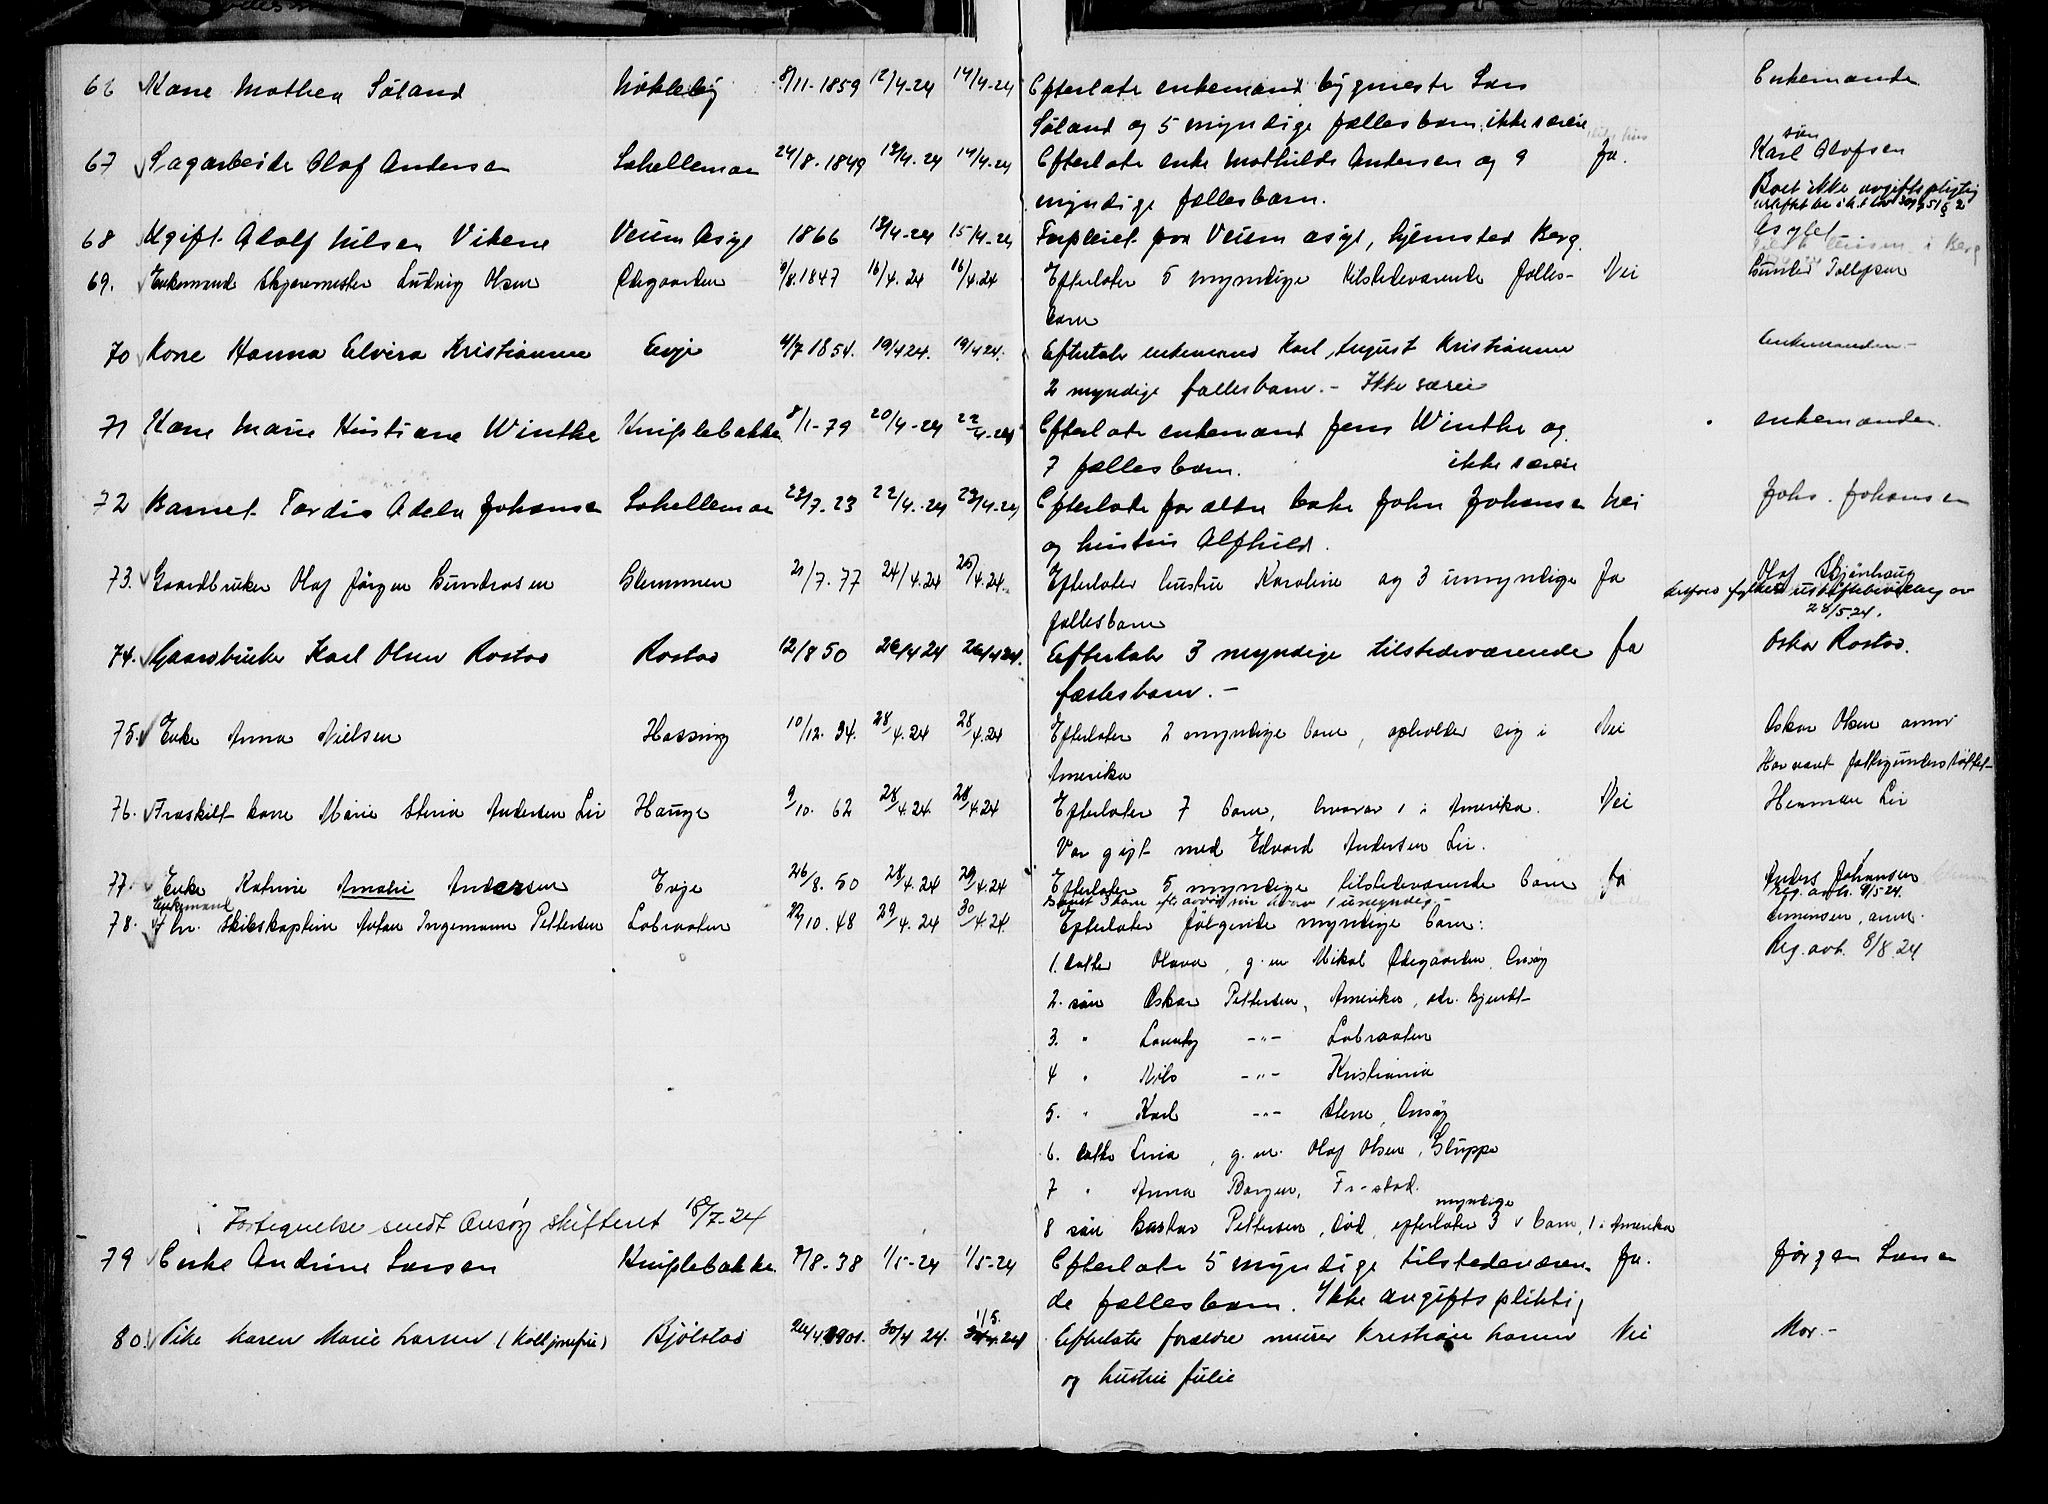 66 Kone Mathea Søland Nøkleby 8/11-1859 12/4-24 14/4-24 Efterlate enkemand bygmeste Lars Enkemanden
Søland og 5 myndige fællesbarn, ikke særeie
67 Sagarbeide Olaf Andersen Lahellemoen 24/8-1849 12/4-24 14/4-24 Efterlate enke Mathilde Andersen og 9 Ja. søn Karl Olofsen
myndige fællesbarn. Boet ikke avgiftspligtig
68 Ugift Adolf Nilsen Vikene Veum Asyl 1866 13/4-24 15/4-24 Forpleiet paa Veum asyl, hjemsted Berg. Asylet
69. Enkemand Skjæremester Ludvig Olsen Ødegaarden 9/8.1847 16/4.24 16/4.24 Efterlater 5 myndige tilstedeværende fælles- Nei Gunda Tollefsen
barn
70 Kone Hanna Elvira Kristiansen Evje 4/7 1854. 19/4 24. 19/4 24. Efterlater enkemand Karl August Kristiansen Enkemanden.-
2 myndige fællesbarn.- Ikke særeie
71 Kone Marie Kristiane Winthe Kniplebakke 8/1-79 20/4-24 22/4-24 Efterlate enkemand Jens Winthe og enkemanden.
7 fællesbarn. ikke særeie
72 Barnet Tordis Adele Johansen Lahellemoen 22/7-23 22/4.-24 23/4-24 Efterlate forældre John Johansen Nei Johs. Johansen
og hustru Alfhild.
73. Gaardbruker Olaf Jørgen Gundrosen Glemmen 21/7.77 24/4.24 25/4.24. Efterlater hustru Karoline og 3 umyndige Ja Olaf
fællesbarn 28/5.24.
74. Gaardbruker Karl Olsen Rostad Rostad 12/8 50 26/4 24 26/4 24. Efterlater 3 myndige tilstedeværende Ja Oskar Rostad.
fællesbarn.-
75. Enke Anna Nielsen Hassing 10/12. 34. 28/4.24 28/4.24 Efterlater 2 myndige barn, opholder sig i Nei Oskar Olsen anm
Amerika Har været fattigunderstøttet
76. Fraskilt kone Marie Stena Andersen Lie Hauge 9/10. 62 28/4.24. 28/4.24 Efterlater 7 barn, hvorav 1 i Amerika. Nei Herman Lie
Var gift med Edvard Andersen Lie.
77. Enke Katrine Amalie Andersen Evje 26/8. 50 28/4.24 29/4.24 Efterlater 5 myndige tilstedeværende barn Ja Anders Johansen
samt 3 barn efter avdød hvorav 1 umyndig.- Reg. avh. 9/5 24.
Enkemand
78. Fhv. Skibskaptein Anton Ingemann Pettersen Labraaten 22/10. 48 29/4. 24 30/4. 24. Efterlater følgende myndige barn: Simensen, anm.
Reg. avh. 8/8.24
1. datter Olava, g. m Mikal Ødegaarden, Onsøy
2. søn Oskar Pettersen, Amerika, adr. kjendt
3. " Lauritz -"- Labraaten
4 " Nils -"- Kristiania
5. " Karl -"- Stene, Onsøy
6. datte Lina, g. m. Olaf Olsen, Gluppe
7 " Anna Borgen, Fr-stad.
Fortegnelse sendt Onsøy skifteret 18/7-24 8 søn Gustav Pettersen, død, efterlater 3 myndige barn, 1 i Amerika
79 Enke Andrine Larsen Kniplebakke 7/8-38 1/5-24 1/5-24 Efterlate 5 myndige tilstedeværen- Ja. Jørgen Larsen
de fællesbarn. Ikke avgiftspliktig
80. Pike Karen Marie Larsen Bjølstad 24/4 1901. 30/4 24. 1/5. 24 Efterlater forældre murer Kristian Larsen Nei Mor.-
og hustru Julie